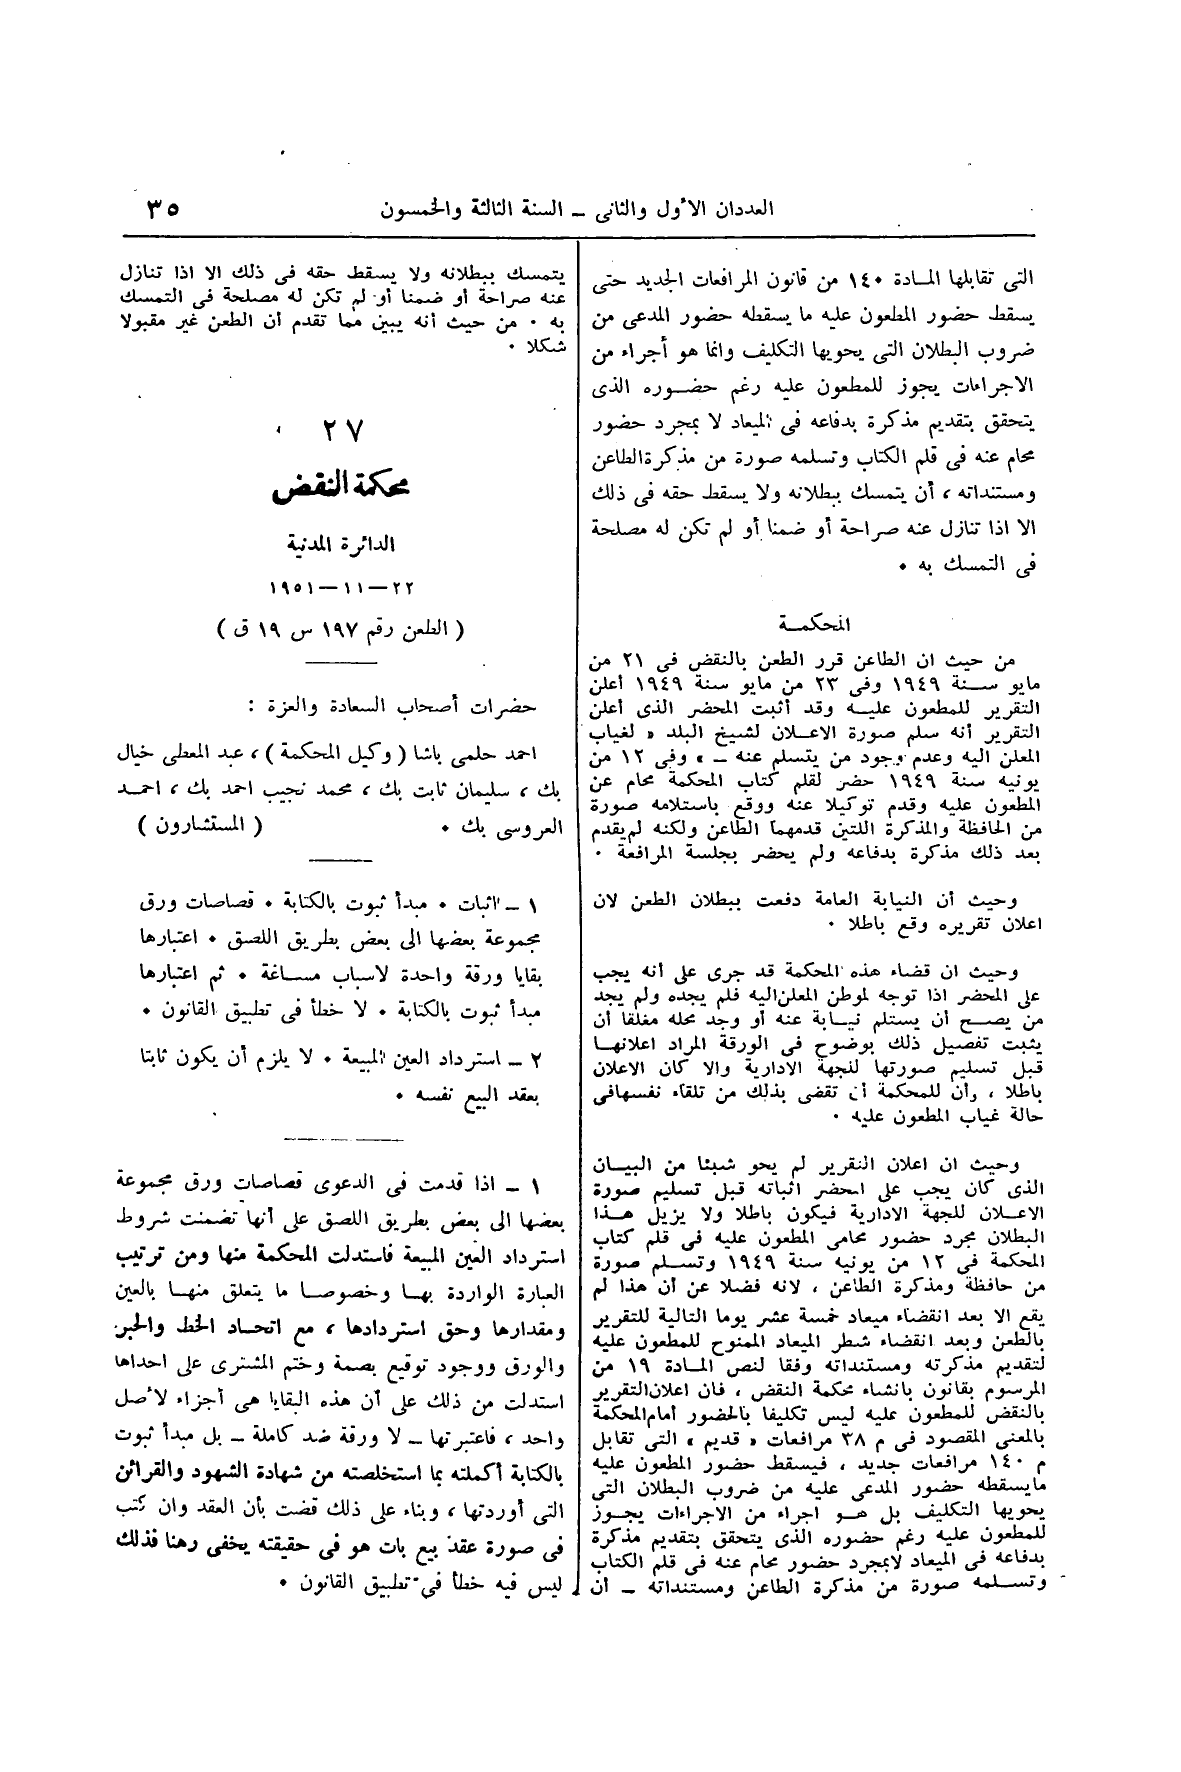 العددان الأول والثانى ــ السنة الثالثة والخمسون
٣٥
التى تقابلها المــادة ١٤٠ من قانون المرافعات الجديد حتى
يسقط حضور المطعون عليه ما يسقطه حضور المدعى من
ضروب البطلان التى يحويها التكليف وانما هو أجراء من
الاجراءات يجوز للمطعون عليه رغم حضــوره الذى
يتحقق بتقديم مذكرة بدفاعه فى الميعاد لا بمجرد حضور
محام عنه فى قلم الكتاب وتسلمه صورة من مذكرة الطاعن
ومستنداته ، أن يتمسك ببطلانه ولا يسقط حقه فى ذلك
الا اذا تنازل عنه صراحة أو ضمنا أو لم تكن له مصلحة
فى التمسك به ٠
المحكمــة
من حيث ان الطاعن قرر الطعن بالنقض فى ٢١ من
مايو ســنة ١٩٤٩ وفى ٢٣ من مايو سنة ١٩٤٩ أعلن
التقرير للمطعون عليــه وقد أثبت المحضر الذى أعلن
التقرير أنه سلم صورة الاعــلان لشيخ البلد « لغياب
المعلن اليه وعدم وجود من يتسلم عنه ــ » وفى ١٢ من
يونيه سنة ١٩٤٩ حضر لقلم كتاب المحكمة محام عن
المطعون عليه وقدم توكيلا عنه ووقع باستلامه صورة
من الحافظة والمذكرة اللتين قدمهما الطاعن ولكنه لم يقدم
بعد ذلك مذكرة بدفاعه ولم يحضر بجلسة المرافعة ٠
وحيث أن النيابة العامة دفعت ببطلان الطعن لان
اعلان تقريره وقع باطلا ٠
وحيث ان قضاء هذه المحكمة قد جرى على أنه يجب
على المحضر اذا توجه لموطن المعلن اليه فلم يجده ولم يجد
من يصــح أن يستلم نيــابة عنه أو وجد محله مغلقا أن
يثبت تفصيل ذلك بوضوح فى الورقة المراد اعلانهــا
قبل تسليم صورتها للجهة الادارية والا كان الاعلان
باطلا ، وأن للمحكمة أن تقضى بذلك من تلقاء نفسها فى
حالة غياب المطعون عليه ٠
وحيث ان اعلان التقرير لم يحو شيئا من البيــان
الذى كان يجب على المحضر اثباته قبل تسليم صورة
الاعــلان للجهة الادارية فيكون باطلا ولا يزيل هــذا
البطلان مجرد حضور محامى المطعون عليه فى قلم كتاب
المحكمة فى ١٢ من يونيه سنة ١٩٤٩ وتســلم صورة
من حافظة ومذكرة الطاعن ، لانه فضلا عن أن هذا لم
يقع الا بعد انقضاء ميعاد خمسة عشر يوما التالية للتقرير
بالطعن وبعد انقضاء شطر الميعاد الممنوح للمطعون عليه
لتقديم مذكرته ومستنداته وفقا لنص المــادة ١٩ من
المرسوم بقانون بانشاء محكمة النقض ، فان اعلان التقرير
بالنقض للمطعون عليه ليس تكليفا بالحضور أمام المحكمة
بالمعنى المقصود فى م ٣٨ مرافعات « قديم » التى تقابل
م ١٤٠ مرافعات جديد ، فيسقط حضور المطعون عليه
مايسقطه حضور المدعى عليه من ضروب البطلان التى
يحويها التكليف بل هــو اجراء من الاجراءات يجــوز
للمطعون عليه رغم حضوره الذى يتحقق بتقديم مذكرة
بدفاعه فى الميعاد لابمجرد حضور محام عنه فى قلم الكتاب
وتســلمه صورة من مذكرة الطاعن ومستنداته ــ أن
يتمسك ببطلانه ولا يسقط حقه فى ذلك الا اذا تنازل
عنه صراحة أو ضمنا أو لم تكن له مصلحة فى التمسك
به ٠ من حيث أنه يبين مما تقدم أن الطعن غير مقبولا
شكلا ٠
٢٧
محكمة النقض
الدائرة المدنية
٢٢ ــ ١١ ــ ١٩٥١
( الطعن رقم ١٩٧ س ١٩ ق )
حضرات أصحاب السعادة والعزة :
احمد حلمى باشا ( وكيل المحكمة ) ، عبد المعطى خيال
بك ، سليمان ثابت بك ، محمد نجيب احمد بك ، احمــد
العروسى بك ٠ ( المستشارون )
١ ــ اثبات ٠ مبدأ ثبوت بالكتابة ٠ قصاصات ورق
مجموعة بعضها الى بعض بطريق اللصق ٠ اعتبارها
بقايا ورقة واحدة لاسباب مســاغة ٠ ثم اعتبارها
مبدأ ثبوت بالكتابة ٠ لا خطأ فى تطبيق القانون ٠
٢ ــ استرداد العين المبيعة ٠ لا يلزم أن يكون ثابتا
بعقد البيع نفسه ٠
١ ــ اذا قدمت فى الدعوى قصاصات ورق مجموعة
بعضها الى بعض بطريق اللصق على أنها تضمنت شروط
استرداد العين المبيعة فاستدلت المحكمة منها ومن ترتيب
العبارة الواردة بهــا وخصوصــا ما يتعلق منهــا بالعين
ومقدارها وحق استردادها ، مع اتحــاد الخط والحبر
والورق ووجود توقيع ببصمة وختم المشترى على احداها
استدلت من ذلك على أن هذه البقايا هى أجزاء لأصل
واحد ، فاعتبرتها ــ لا ورقة ضد كاملة ــ بل مبدأ ثبوت
بالكتابة أكملته بما استخلصته من شهادة الشهود والقرائن
التى أوردتها ، وبناء على ذلك قضت بأن العقد وان كتب
فى صورة عقد بيع بات هو فى حقيقته يخفى رهنا فذلك
ليس فيه خطأ فى تطبيق القانون ٠